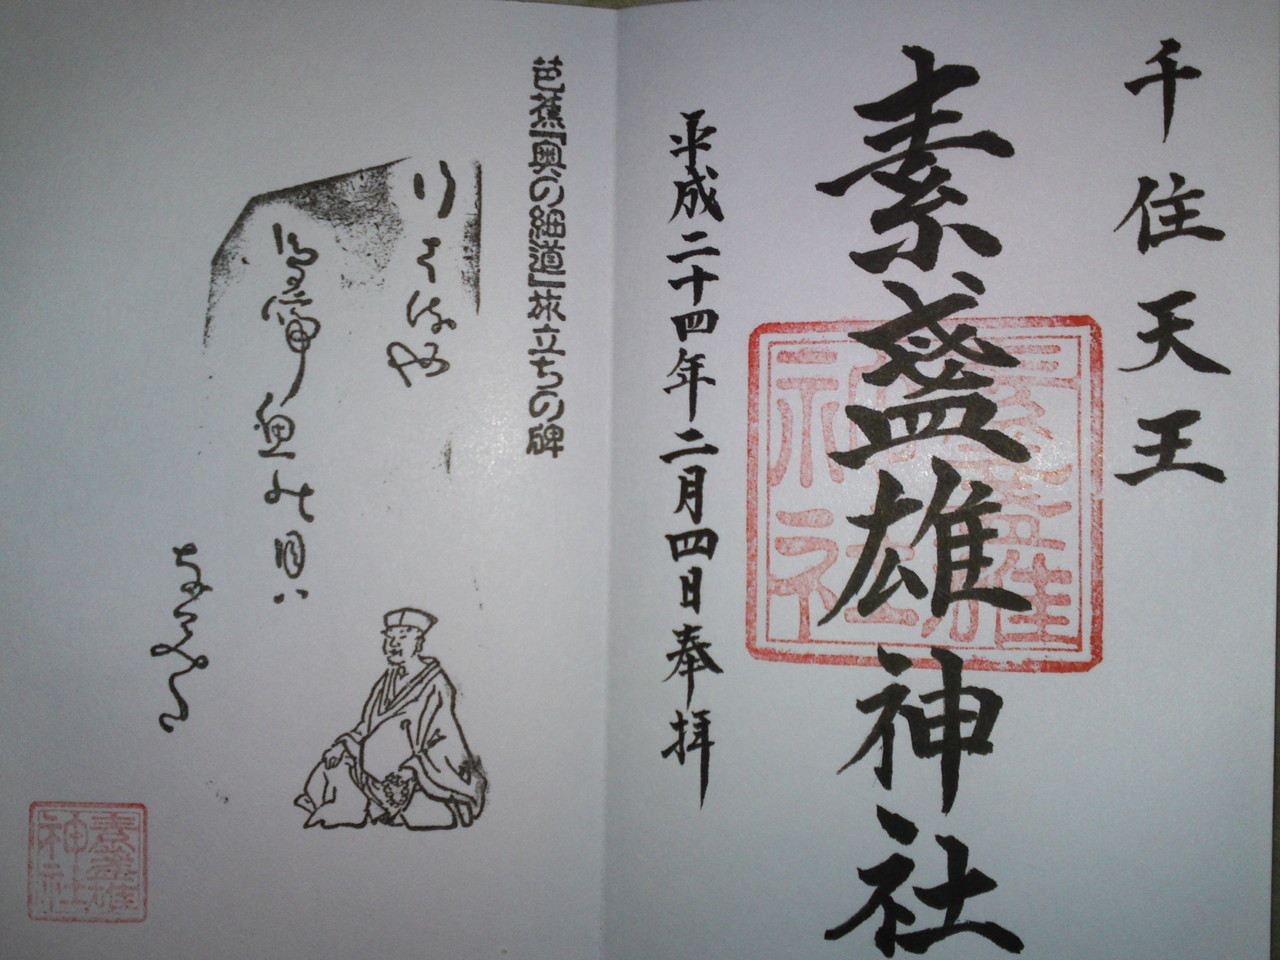 千住天王
素盞雄神社
平成二十四年二月四日奉拝
素盞雄神社
芭蕉『奥の細道』旅立ちの碑
行くはるや
鳥啼魚の目は
なみだ
素盞雄神社